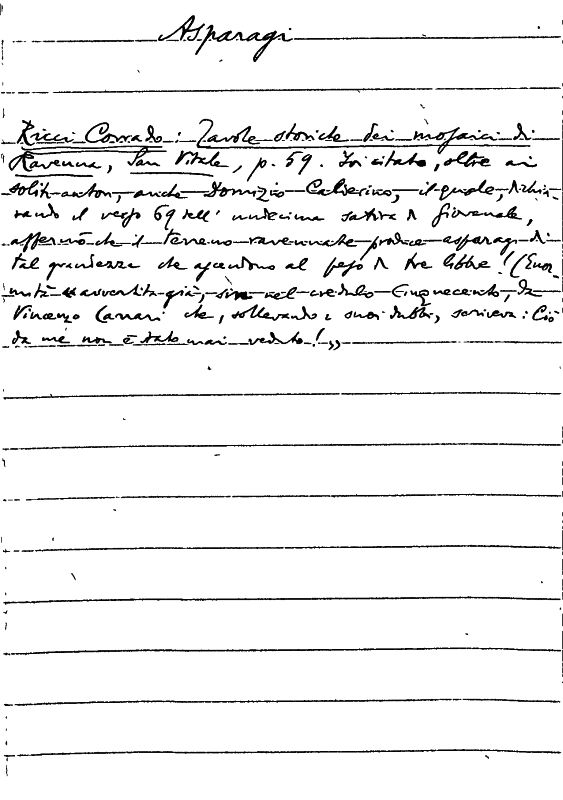 Asparagi
Ricci Corrado: Tavole storiche dei mosaici di
Ravenna, San Vitale, p. 59. Ivi citato, oltre ai
soliti autori, anche Domizio Calderino, il quale, dichia-
rando il verso 69 dell' undecima satira di Giovenale,
affermò che il terreno ravennate produce asparagi di
tal grandezza che ascendono al peso di tre libbre! (Enor-
mità "avvertita già, sin nel credulo Cinquecento, da
Vincenzo Carrari che, sollevando i suoi dubbi, scriveva: Ciò
da me non è stato mai veduto!„